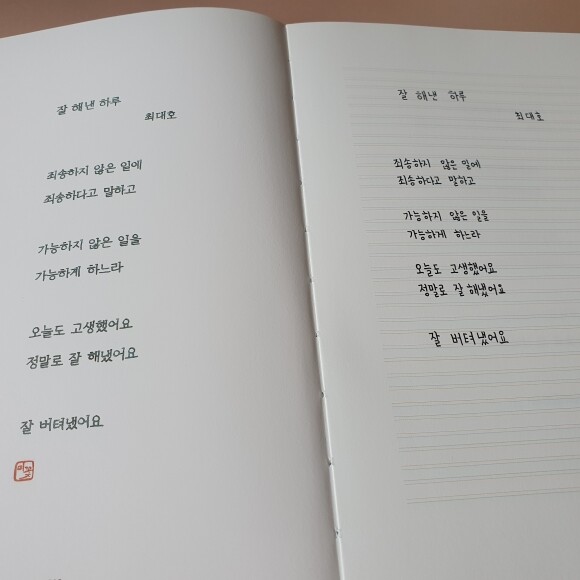 잘 해낸 하루
최대호
죄송하지 않은 일에
죄송하다고 말하고
가능하지 않은 일을
가능하게 하느라
오늘도 고생했어요
정말로 잘 해냈어요
잘 버텨냈어요
잘 해낸 하루
최대호
죄송하지 않은 일에
죄송하다고 말하고
가능하지 않은 일을
가능하게 하느라
오늘도 고생했어요
정말로 잘 해냈어요
잘 버텨냈어요